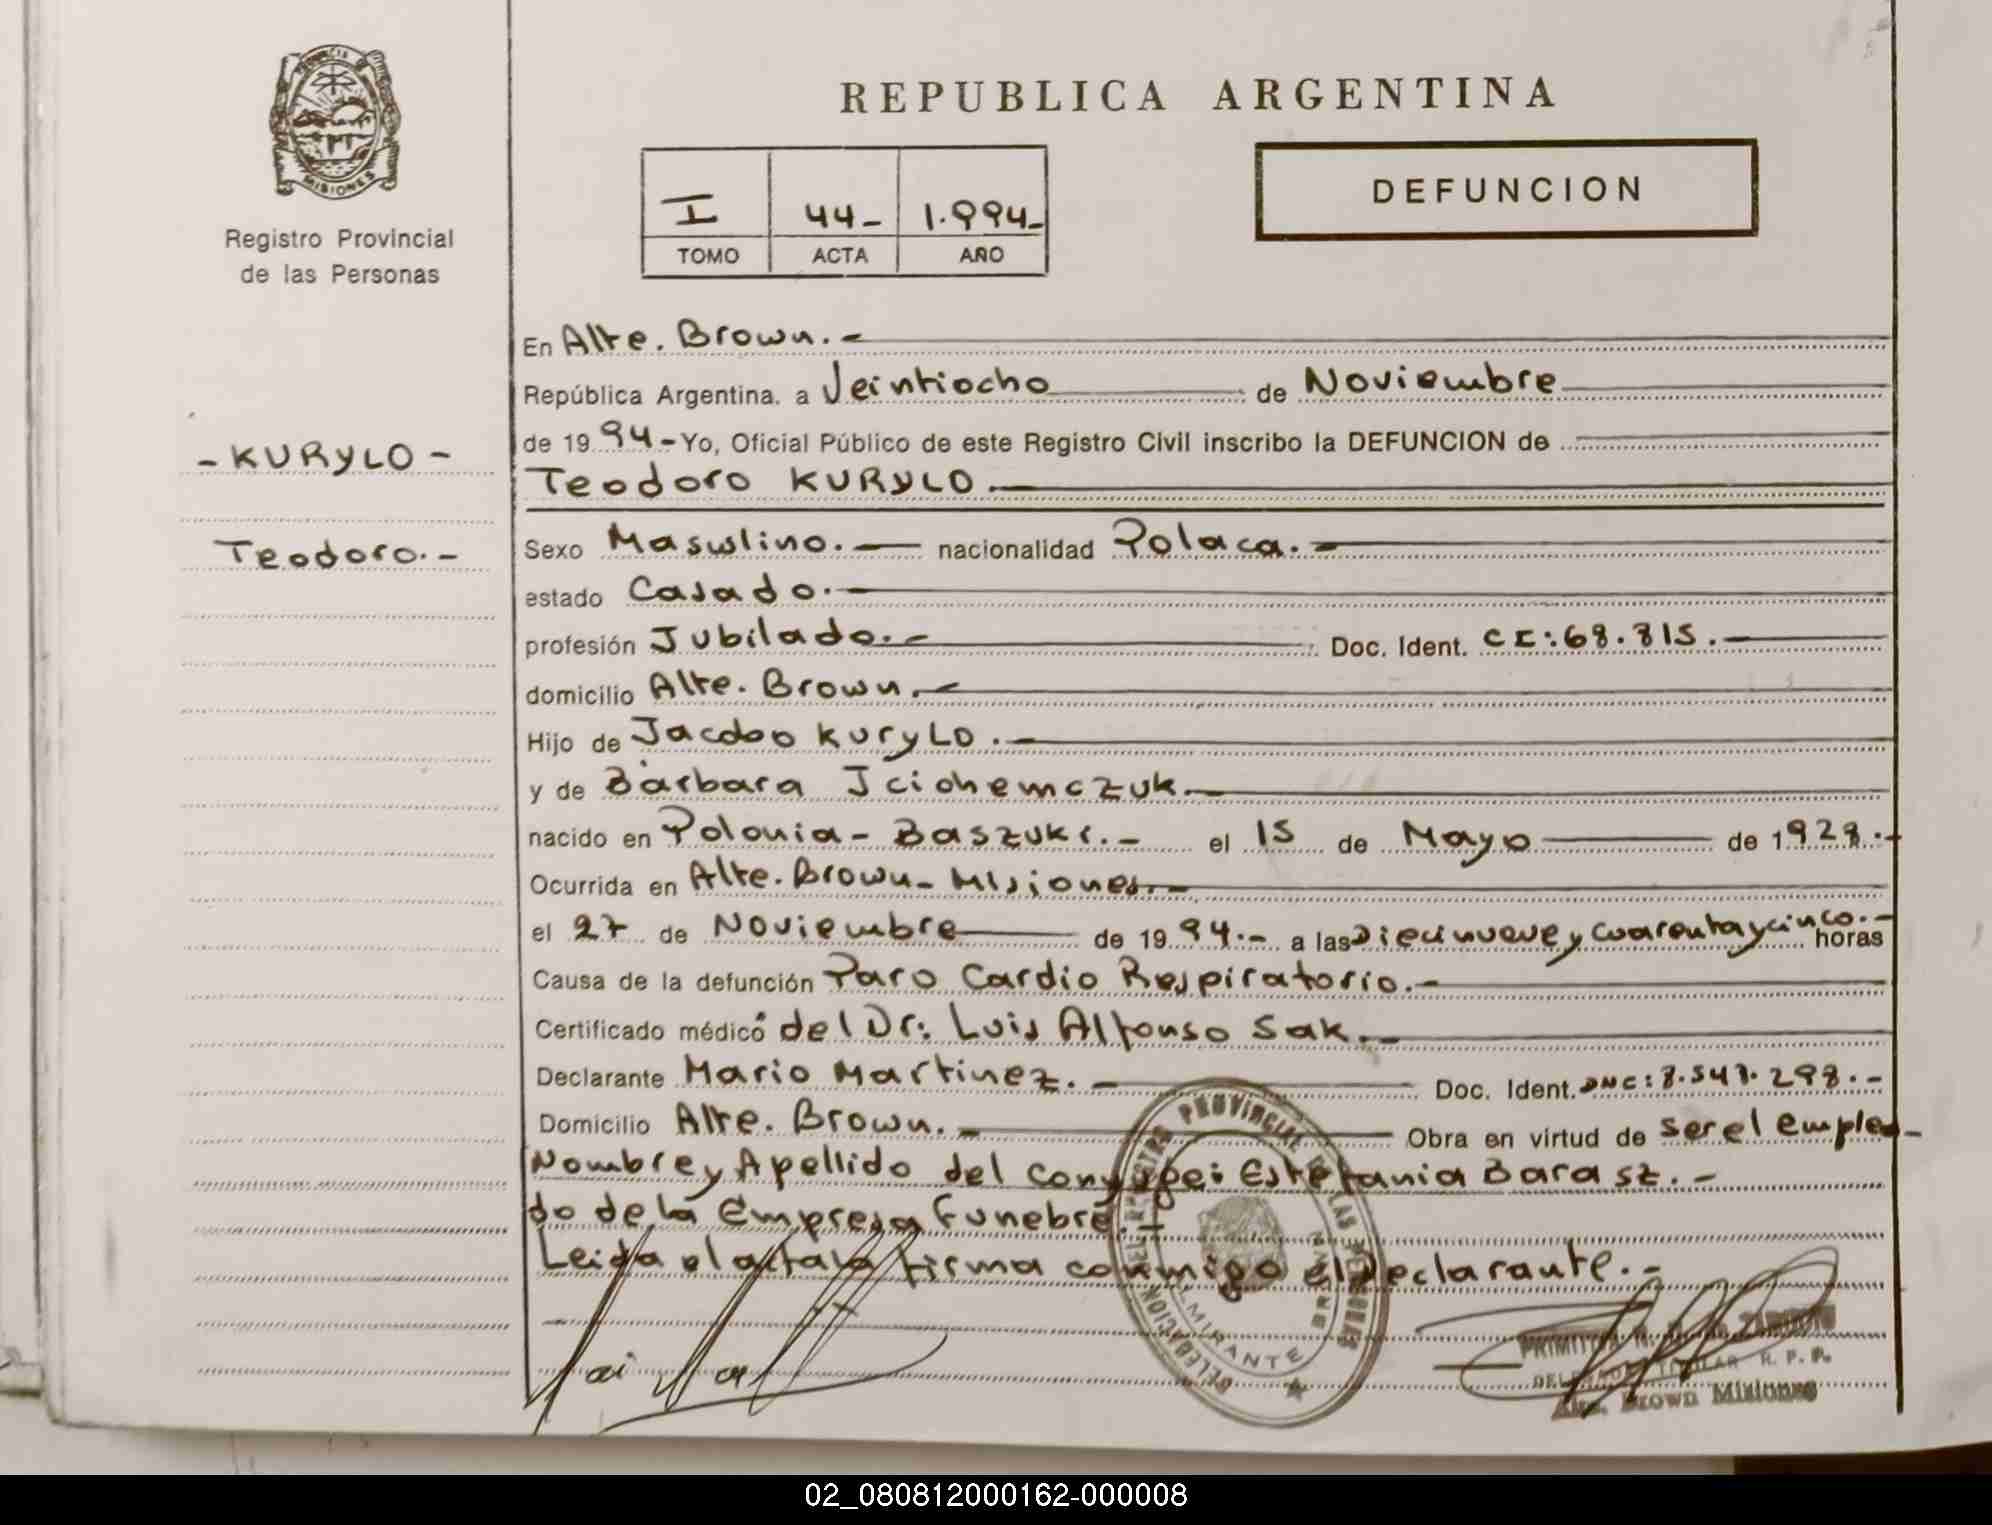 PROVINCIA DE
MISIONES
Registro Provincial
de las Personas
- KURYLO -
Teodoro.-
REPUBLICA ARGENTINA
I 44- 1.994-
TOMO ACTA AÑO
DEFUNCION
En Alte. Brown.-
República Argentina. a Veintiocho de Noviembre
de 19 94- Yo, Oficial Público de este Registro Civil inscribo la DEFUNCION de
Teodoro KURYLO.
Sexo Masculino.- nacionalidad Polaca.-
estado Casado.-
profesión Jubilado.- Doc. Ident. CI:68.815.-
domicilio Alte. Brown.-
Hijo de Jacobo KuryLo.-
y de Bárbara Jciohemczuk.-
nacido en Polonia- Baszuki.- el 15 de Mayo de 1928.-
Ocurrida en Alte. Brown- Misiones.-
el 27 de Noviembre de 19 94.- a las Diecinueve y cuarenta y cinco.- horas
Causa de la defunción Paro Cardio Respiratorio.-
Certificado médico del Dr: Luis Alfonso Sak.-
Declarante Mario Martinez.- Doc. Ident. DNC: 8.547.298.-
Domicilio Alte. Brown.- Obra en virtud de ser el emplea-
Nombre y Apellido del Conyuge: Estefania Barasz.-
do de la Empresa Funebre.-
Leida el acta la firma conmigo el Declarante.-
REGISTRO PROVINCIAL DE LAS PERSONAS
DELEGACION ALMIRANTE BROWN
TITULAR R. P. P.
Alte. Brown Misiones
02_080812000162-000008